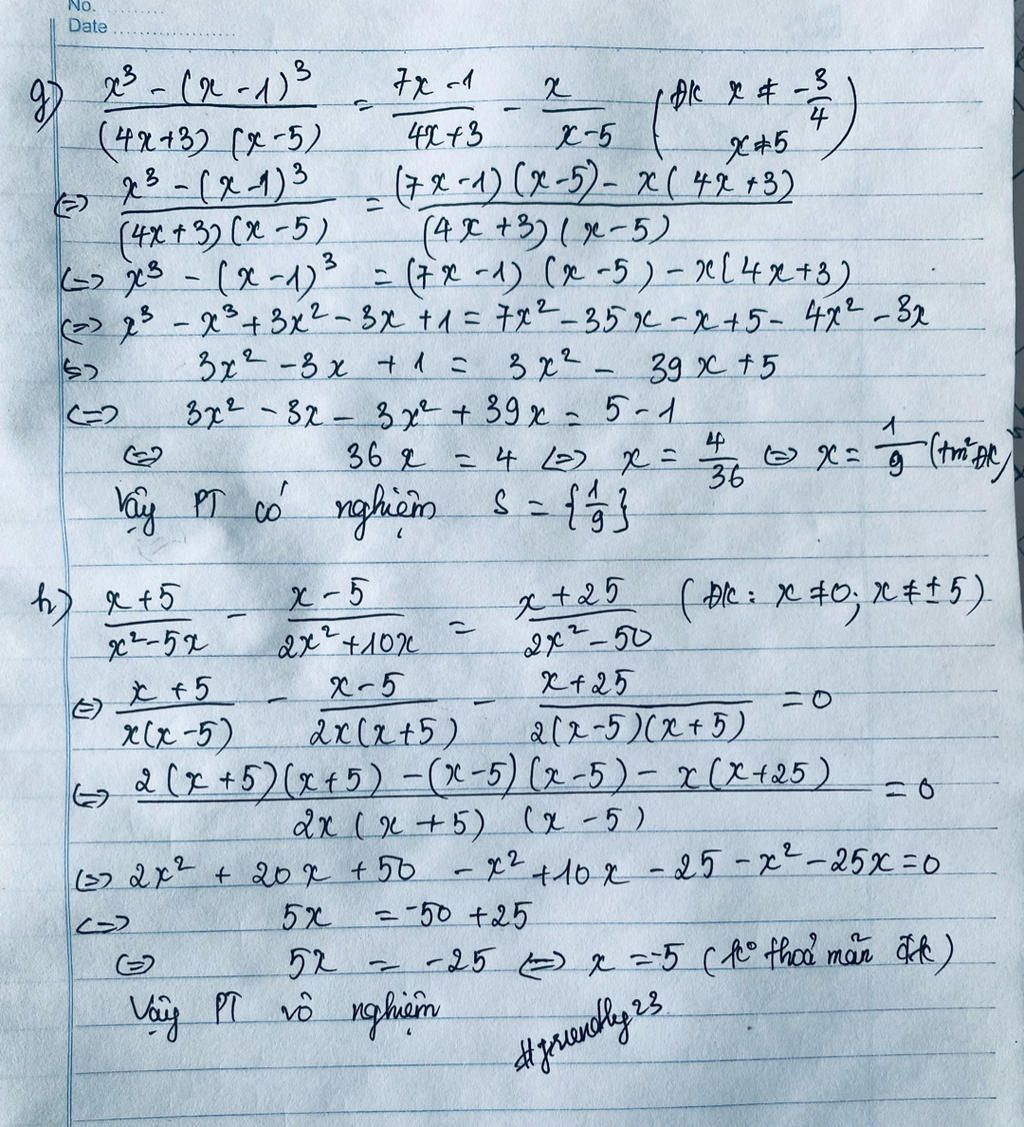 No. ..........
Date ....................
g) \frac{x³ - (x - 1)³}{(4x+3) (x-5)} = \frac{7x - 1}{4x+3} - \frac{x}{x-5} (ĐK x ≠ -\frac{3}{4} x ≠ 5)
<=> \frac{x³ - (x-1)³}{(4x+3)(x-5)} = \frac{(7x-1)(x-5) - x(4x+3)}{(4x+3)(x-5)}
<=> x³ - (x-1)³ = (7x-1) (x-5) - x(4x+3)
<=> x³ - x³ + 3x² - 3x + 1 = 7x² - 35x - x + 5 - 4x² - 3x
<=> 3x² - 3x + 1 = 3x² - 39x + 5
<=> 3x² - 3x - 3x² + 39x = 5 - 1
<=> 36x = 4 <=> x = \frac{4}{36} <=> x = \frac{1}{9} (tm² ĐK)
Vậy PT có nghiệm S = {\frac{1}{9}}
h) \frac{x+5}{x²-5x} - \frac{x-5}{2x²+10x} = \frac{x+25}{2x²-50} (ĐK: x ≠ 0; x ≠ ± 5)
<=> \frac{x+5}{x(x-5)} - \frac{x-5}{2x(x+5)} - \frac{x+25}{2(x-5)(x+5)} = 0
<=> \frac{2(x+5)(x+5) - (x-5)(x-5) - x(x+25)}{2x(x+5) (x-5)} = 0
<=> 2x² + 20x + 50 - x² + 10x - 25 - x² - 25x = 0
<=> 5x = -50 + 25
<=> 5x = -25 <=> x = -5 (k° thoả mãn đk)
Vậy PT vô nghiệm
#friendly23